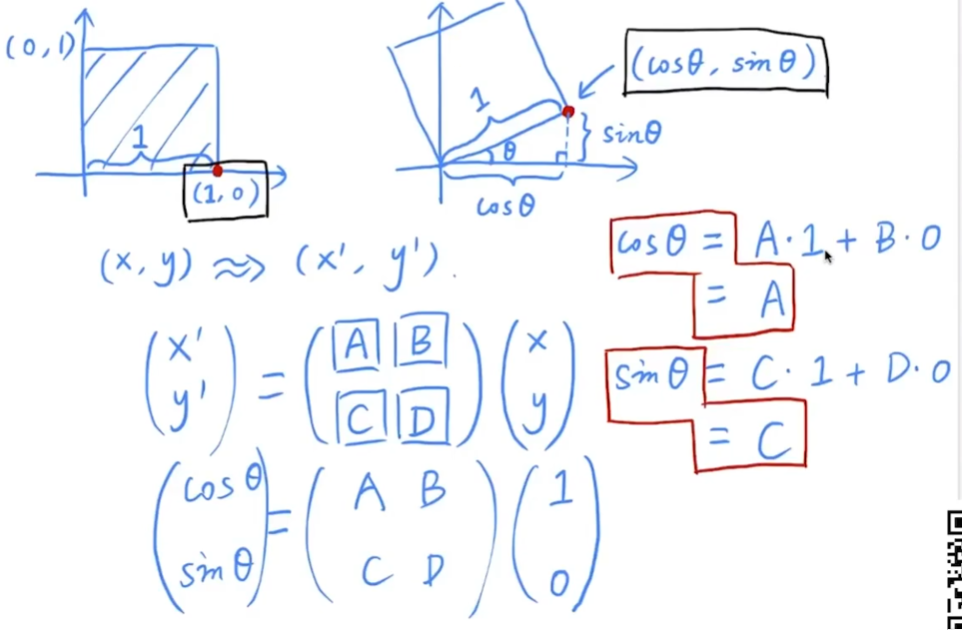 (0,1)
1
(1,0)
1
θ
(cosθ, sinθ)
sinθ
cosθ
(x, y) ⇝ (x', y').
cosθ = A·1 + B·0
= A
(x' y') = (A B C D) (x y)
sinθ = C·1 + D·0
= C
(cosθ sinθ) = (A B C D) (1 0)